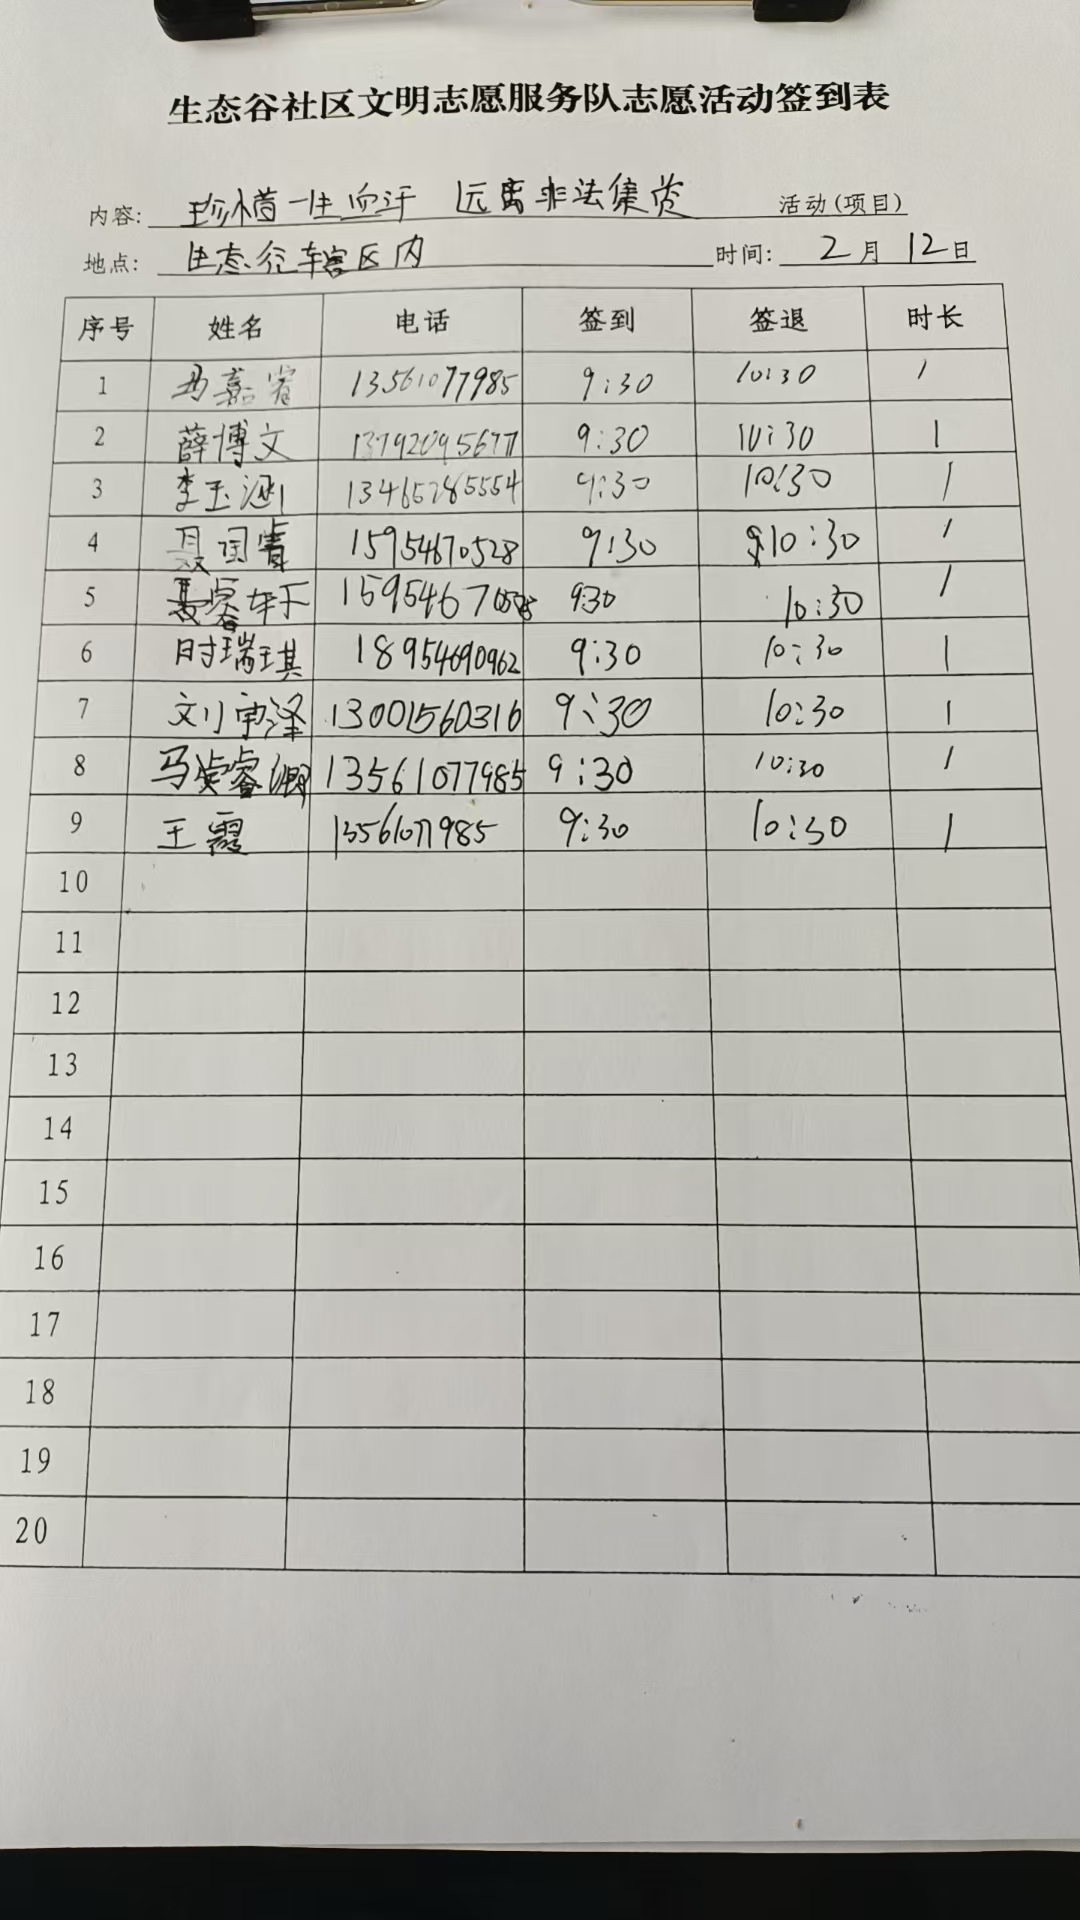 生态谷社区文明志愿服务队志愿活动签到表
内容: 珍惜一生血汗 远离非法集资 活动(项目)
地点: 生态谷辖区内 时间: 2月12日
序号 姓名 电话 签到 签退 时长
1 马嘉 13561077985 9:30 10:30 1
2 薛博文 13792095677 9:30 10:30 1
3 李玉涵 13465285554 9:30 10:30 1
4 聂国青 15954670528 9:30 10:30 1
5 聂睿轩 15954670528 9:30 10:30 1
6 时瑞琪 18954690962 9:30 10:30 1
7 刘宇泽 13001560316 9:30 10:30 1
8 马 睿 13561077985 9:30 10:30 1
9 王霞 13561077985 9:30 10:30 1
10
11
12
13
14
15
16
17
18
19
20